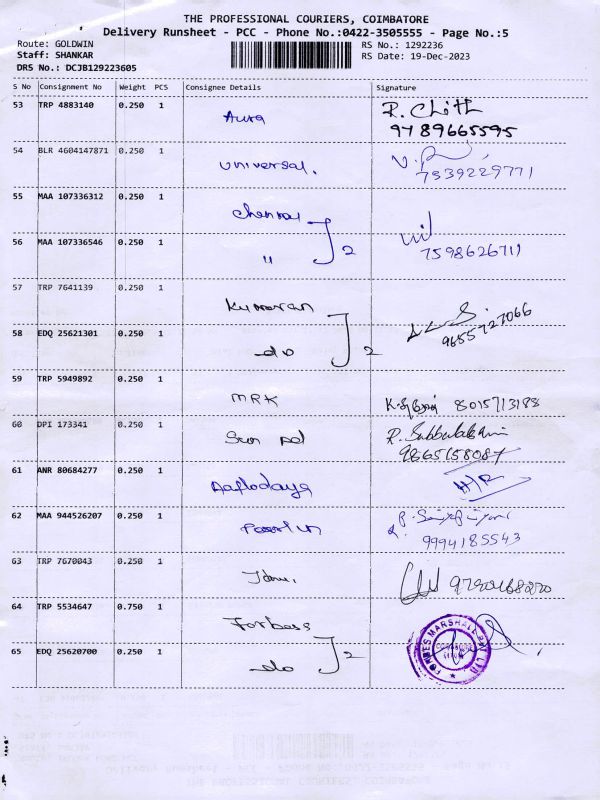 THE PROFESSIONAL COURIERS, COIMBATORE
Delivery Runsheet - PCC - Phone No.:0422-3505555 - Page No.:5
Route: GOLDWIN RS No.: 1292236
Staff: SHANKAR RS Date: 19-Dec-2023
DRS No.: DCJB129223605
S No Consignment No Weight PCS Consignee Details Signature
53 TRP 4883140 0.250 1 Aura R. Chith
9789665595
54 BLR 4604147871 0.250 1 Universal. 7539229771
55 MAA 107336312 0.250 1 Chennai
56 MAA 107336546 0.250 1 " 2 7598626711
57 TRP 7641139 0.250 1 Kumaran
58 EDQ 25621301 0.250 1 do 2 9655727066
59 TRP 5949892 0.250 1 MRK 8015713188
60 DPI 173341 0.250 1 Sun pd R. Subbulakshmi
9865158087
61 ANR 80684277 0.250 1 Aaplodaya H/R
62 MAA 944526207 0.250 1
9994185543
63 TRP 7670043 0.250 1
64 TRP 5534647 0.750 1 Forbess
65 EDQ 25620700 0.250 1 do 2
FORBES MARSHALL PVT. LTD.